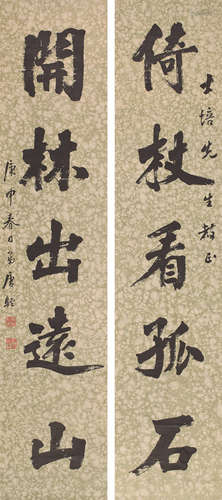 士培先生教正
倚杖看孤石
開林出遠山
庚申春日弟唐駝